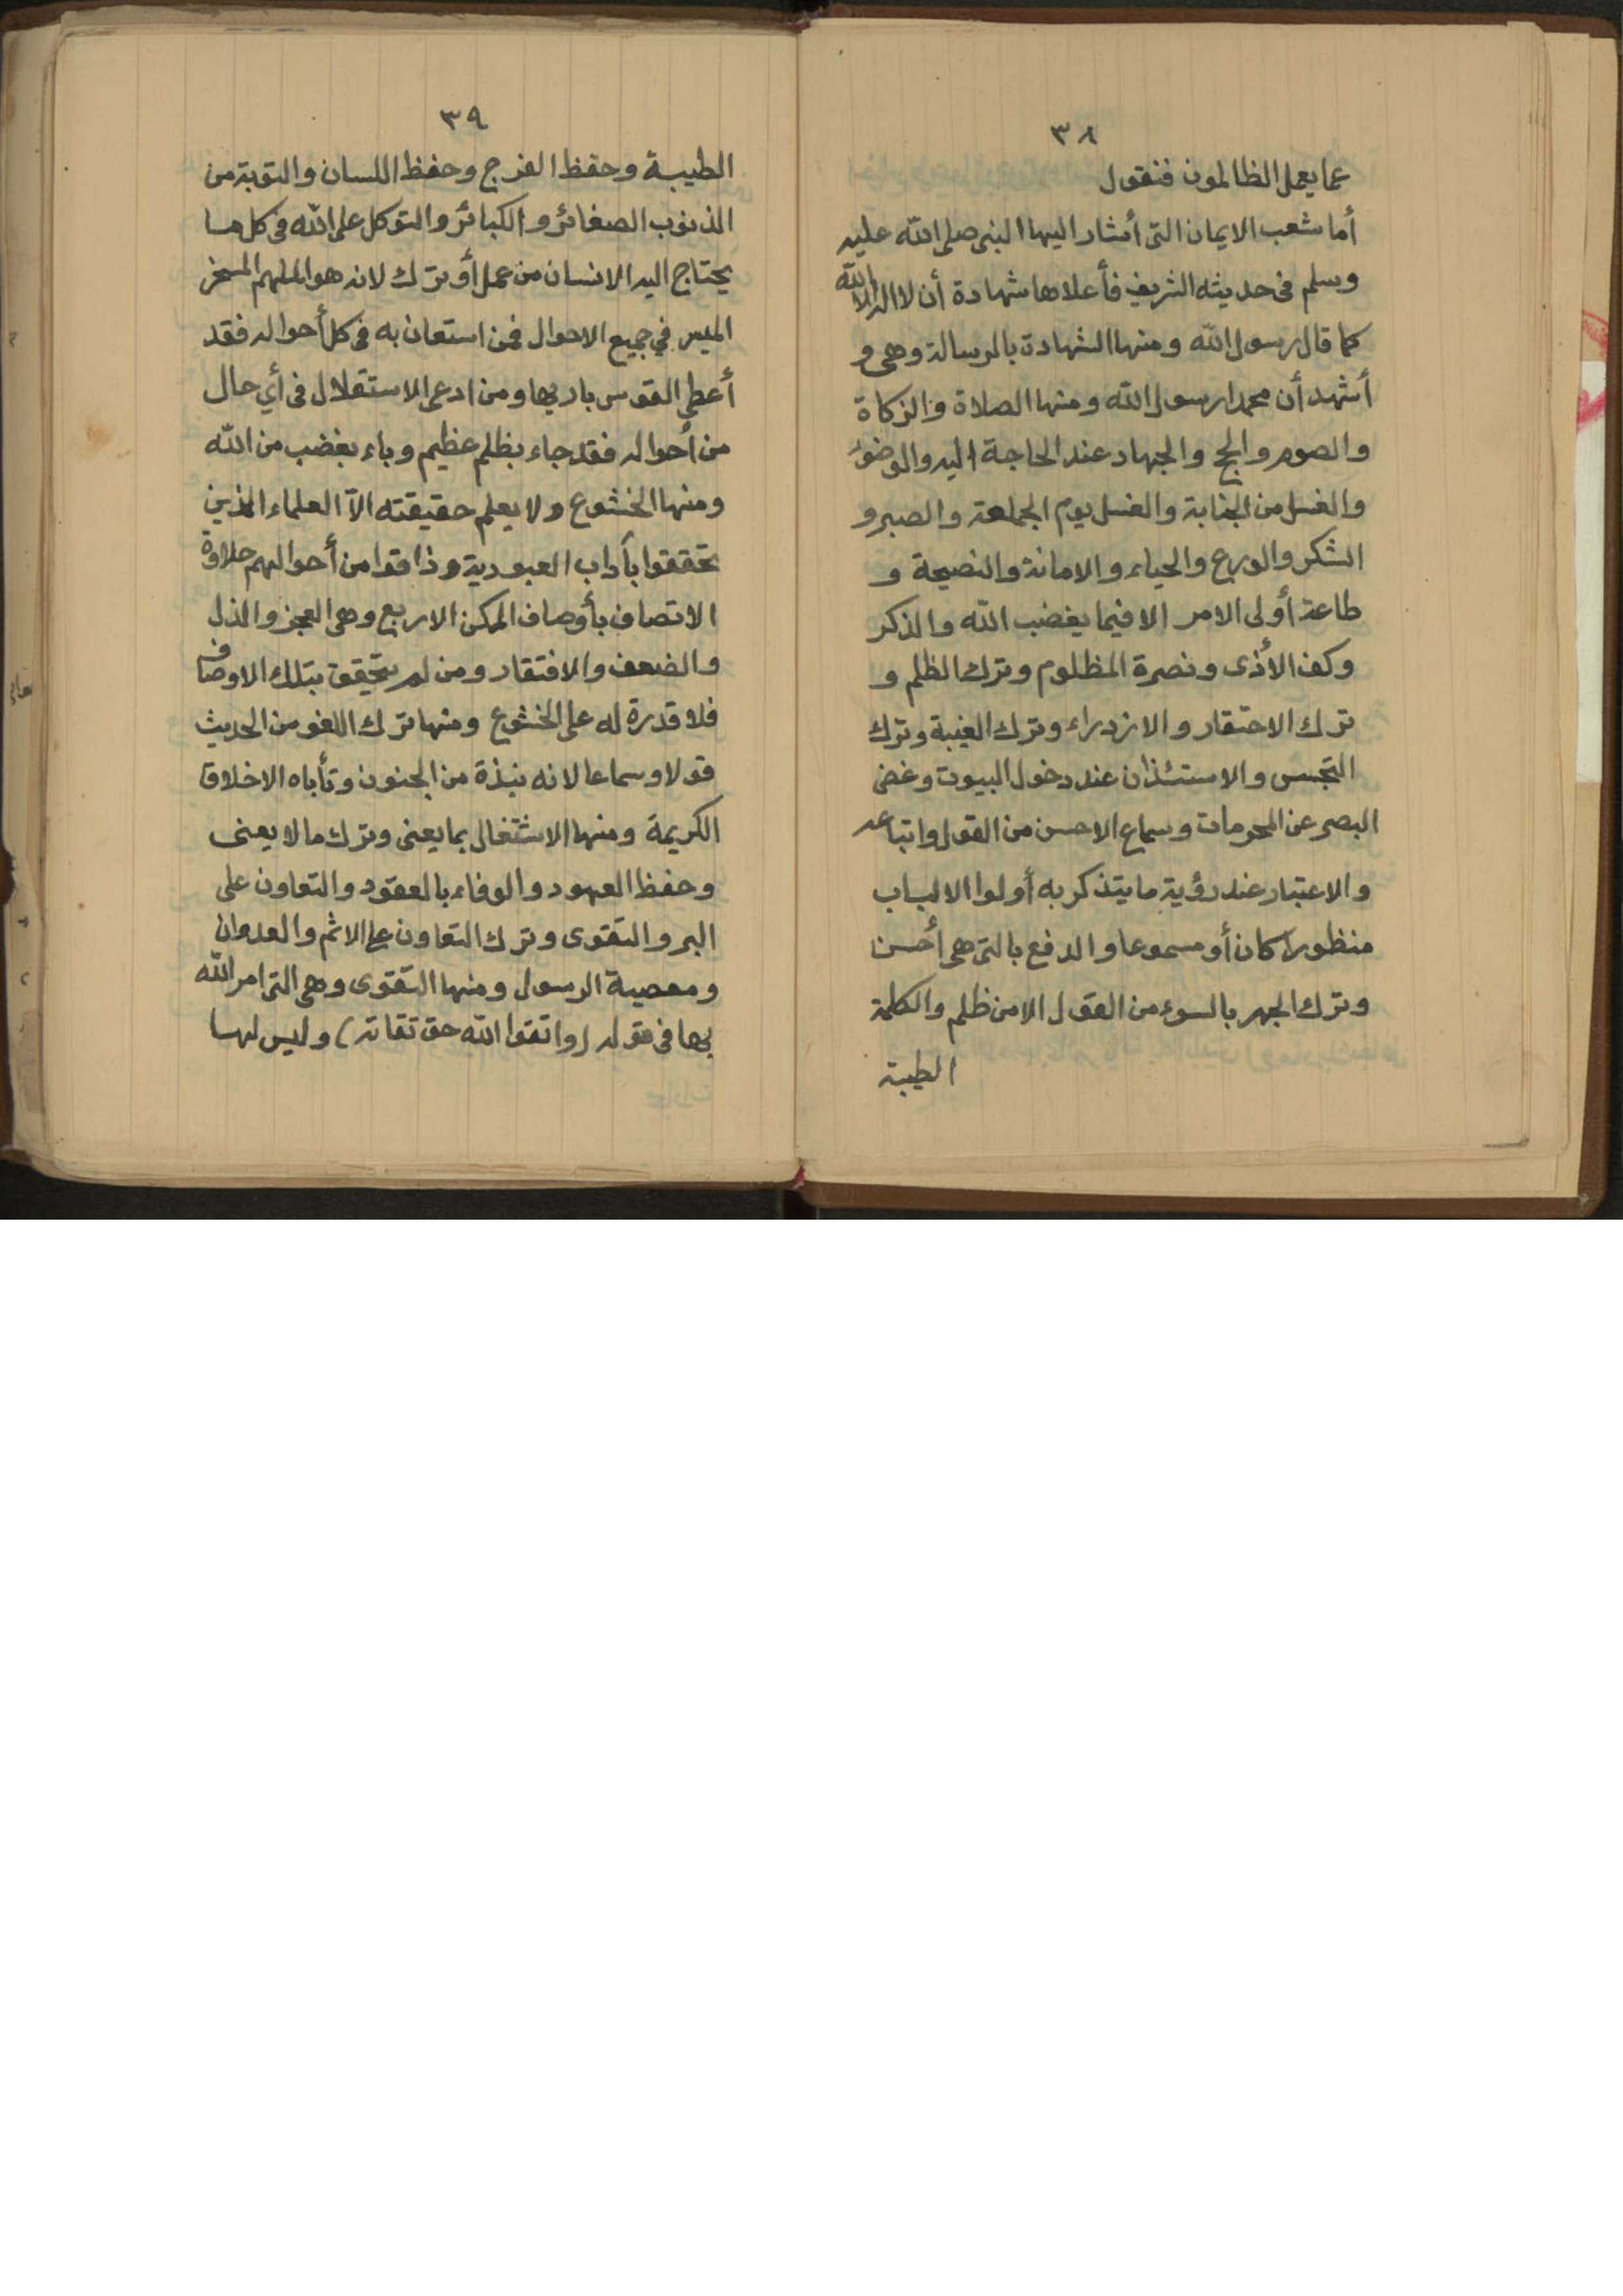 ٣٨
عما يعمل الظالمون فنقول
أما شعب الايمان التى أشار اليها النبى صلى الله عليه
وسلم فى حديثه الشريف فأعلاها شهادة أن لا اله الا الله
كما قال رسول الله ومنها الشهادة بالرسالة وهى و
أشهد أن محمدا رسول الله ومنها الصلاة والزكاة
والصوم والحج والجهاد عند الحاجة اليه والوضوء
والغسل من الجنابة والغسل يوم الجمعة والصبر و
الشكر والورع والحياء والامانة والنصيحة و
طاعة أولى الامر الا فيما يغضب الله والذكر
وكف الأذى ونصرة المظلوم وترك الظلم و
ترك الاحتقار والازدراء وترك الغيبة وترك
التجسس والاستئذان عند دخول البيوت وغض
البصر عن المحرمات وسماع الاحسن من القول واتباعه
والاعتبار عند رؤية ما يتذكر به أولوا الالباب
منظورا كان أو مسموعا والدفع بالتى هى أحسن
وترك الجهر بالسوء من القول الا من ظلم والكلمة
الطيبة
٣٩
الطيبة وحفظ الفرج وحفظ اللسان والتوبة من
الذنوب الصغائر والكبائر والتوكل على الله فى كل ما
يحتاج اليه الانسان من عمل أو ترك لانه هو الملهم المسخر
الميسر في جميع الاحوال فمن استعان به فى كل أحواله فقد
أعطى القوس باريها ومن ادعى الاستقلال فى أي حال
من أحواله فقد جاء بظلم عظيم وباء بغضب من الله
ومنها الخشوع ولا يعلم حقيقته الا العلماء الذين
تحققوا بآداب العبودية وذاقوا من أحوالهم حلاوة
الاتصاف بأوصاف الممكن الاربع وهى العجز والذل
والضعف والافتقار ومن لم يتحقق بتلك الاوصاف
فلا قدرة له على الخشوع ومنها ترك اللغو من الحديث
قولا وسماعا لانه نبذة من الجنون وتأباه الاخلاق
الكريمة ومنها الاشتغال بما يعنى وترك ما لا يعنى
وحفظ العهود والوفاء بالعقود والتعاون على
البر والتقوى وترك التعاون على الاثم والعدوان
ومعصية الرسول ومنها التقوى وهى التى امر الله
بها فى قوله (واتقوا الله حق تقاته) وليس لها